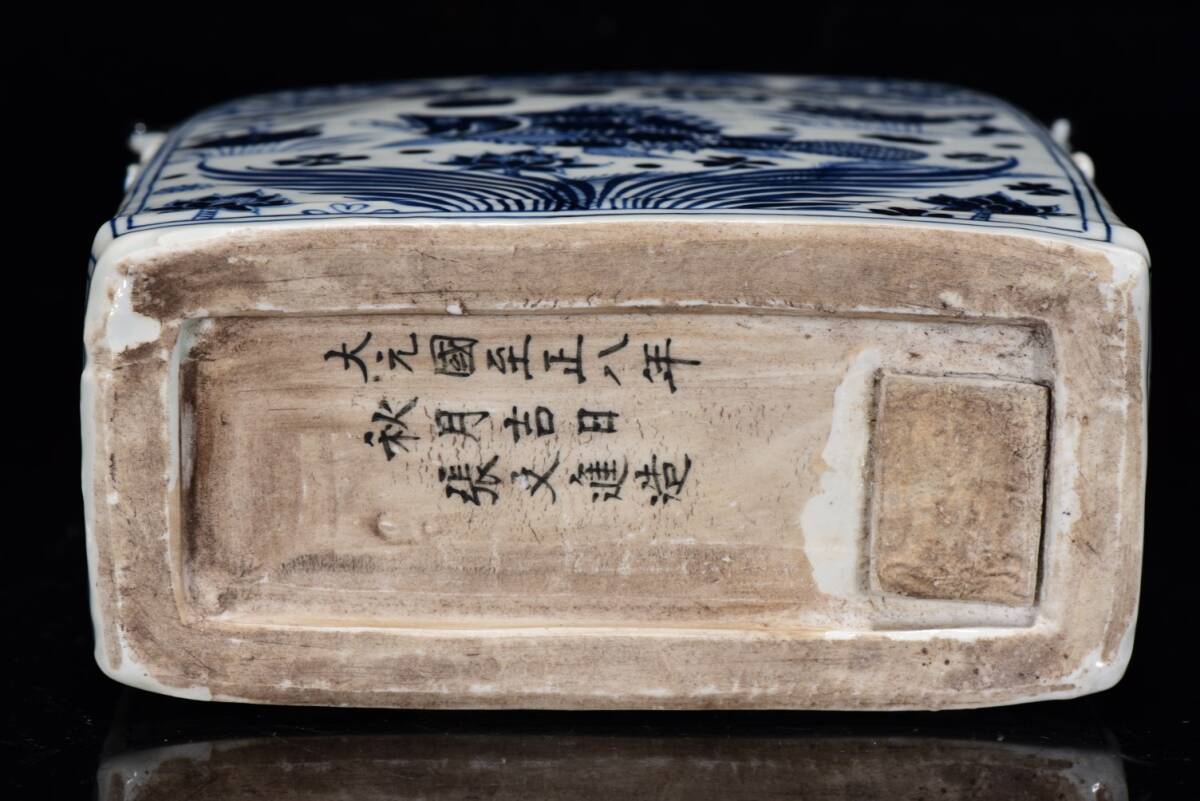 大元國至正八年
秋月吉日
張文進造